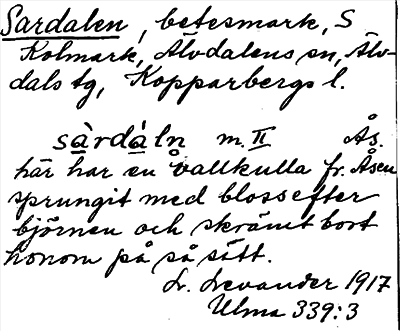 Sardalen, betesmark, S
Kolmark, Älvdalens sn, Älv-
dals tg, Kopparbergs l.
sàrdàln m. II Ås.
här har en vallkulla fr. Åsen
sprungit med bloss efter
björnen och skrämt bort
honom på så sätt.
L. Levander 1917
Ulma 339:3